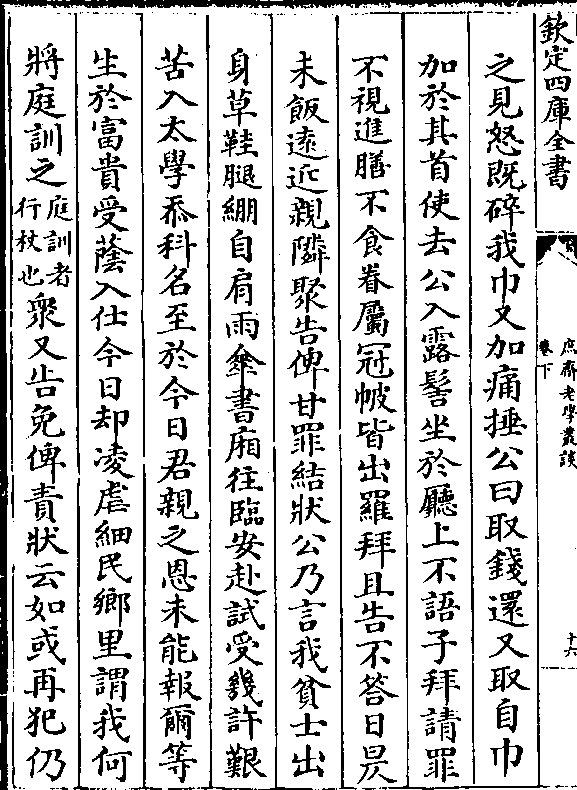 欽定四庫全書
庶齋老學叢談
卷下
十六
之見怒既碎我巾又加痛捶公曰取錢還又取自巾
加於其首使去公入露髻坐於廳上不語子拜請罪
不視進膳不食眷屬冠帔皆出羅拜且告不答日昃
未飯遠近親隣聚告俾甘罪結狀公乃言我貧士出
身草鞋腿繃自肩雨傘書廂往臨安赴試受幾許艱
苦入太學忝科名至於今日君親之恩未能報爾等
生於富貴受蔭入仕今日却凌虐細民鄉里謂我何
將庭訓之庭訓者行杖也衆又告免俾責狀云如或再犯仍